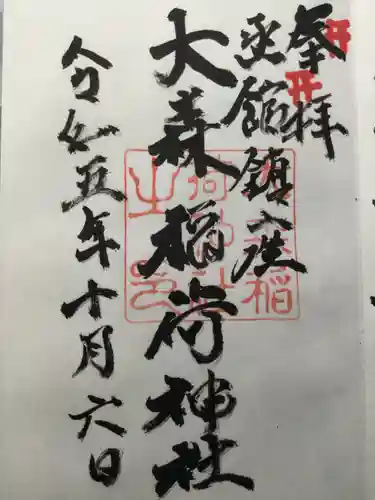 奉拝
函館鎮座
大森稲荷神社
令和五年十月六日